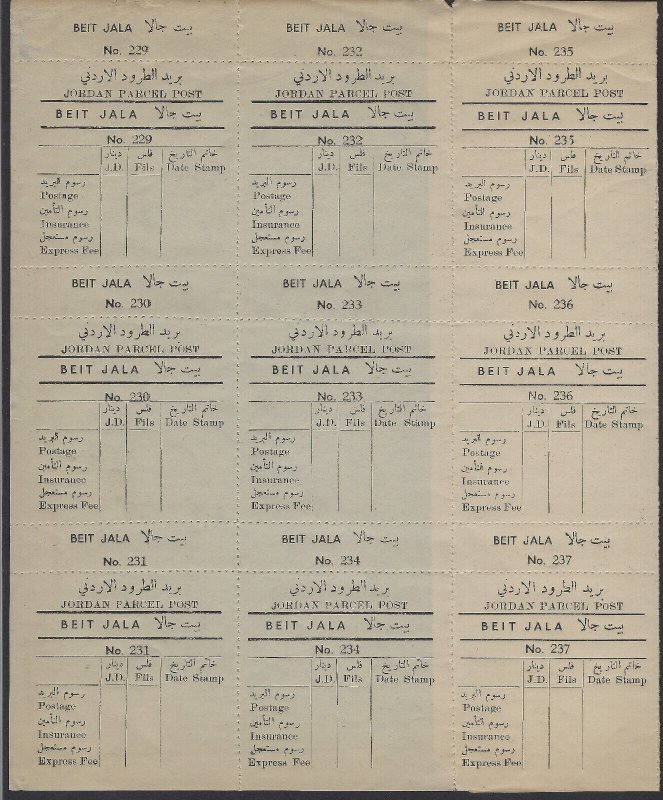 BEIT JALA بيت جالا
No. 229
بريد الطرود الاردني
JORDAN PARCEL POST
BEIT JALA بيت جالا
No. 229
دينار فلس خاتم التاريخ
J.D. Fils Date Stamp
رسوم البريد
Postage
رسوم التأمين
Insurance
رسوم مستعجل
Express Fee
BEIT JALA بيت جالا
No. 232
بريد الطرود الاردني
JORDAN PARCEL POST
BEIT JALA بيت جالا
No. 232
دينار فلس خاتم التاريخ
J.D. Fils Date Stamp
رسوم البريد
Postage
رسوم التأمين
Insurance
رسوم مستعجل
Express Fee
BEIT JALA بيت جالا
No. 235
بريد الطرود الاردني
JORDAN PARCEL POST
BEIT JALA بيت جالا
No. 235
دينار فلس خاتم التاريخ
J.D. Fils Date Stamp
رسوم البريد
Postage
رسوم التأمين
Insurance
رسوم مستعجل
Express Fee
BEIT JALA بيت جالا
No. 230
بريد الطرود الاردني
JORDAN PARCEL POST
BEIT JALA بيت جالا
No. 230
دينار فلس خاتم التاريخ
J.D. Fils Date Stamp
رسوم البريد
Postage
رسوم التأمين
Insurance
رسوم مستعجل
Express Fee
BEIT JALA بيت جالا
No. 233
بريد الطرود الاردني
JORDAN PARCEL POST
BEIT JALA بيت جالا
No. 233
دينار فلس خاتم التاريخ
J.D. Fils Date Stamp
رسوم البريد
Postage
رسوم التأمين
Insurance
رسوم مستعجل
Express Fee
BEIT JALA بيت جالا
No. 236
بريد الطرود الاردني
JORDAN PARCEL POST
BEIT JALA بيت جالا
No. 236
دينار فلس خاتم التاريخ
J.D. Fils Date Stamp
رسوم البريد
Postage
رسوم التأمين
Insurance
رسوم مستعجل
Express Fee
BEIT JALA بيت جالا
No. 231
بريد الطرود الاردني
JORDAN PARCEL POST
BEIT JALA بيت جالا
No. 231
دينار فلس خاتم التاريخ
J.D. Fils Date Stamp
رسوم البريد
Postage
رسوم التأمين
Insurance
رسوم مستعجل
Express Fee
BEIT JALA بيت جالا
No. 234
بريد الطرود الاردني
JORDAN PARCEL POST
BEIT JALA بيت جالا
No. 234
دينار فلس خاتم التاريخ
J.D. Fils Date Stamp
رسوم البريد
Postage
رسوم التأمين
Insurance
رسوم مستعجل
Express Fee
BEIT JALA بيت جالا
No. 237
بريد الطرود الاردني
JORDAN PARCEL POST
BEIT JALA بيت جالا
No. 237
دينار فلس خاتم التاريخ
J.D. Fils Date Stamp
رسوم البريد
Postage
رسوم التأمين
Insurance
رسوم مستعجل
Express Fee